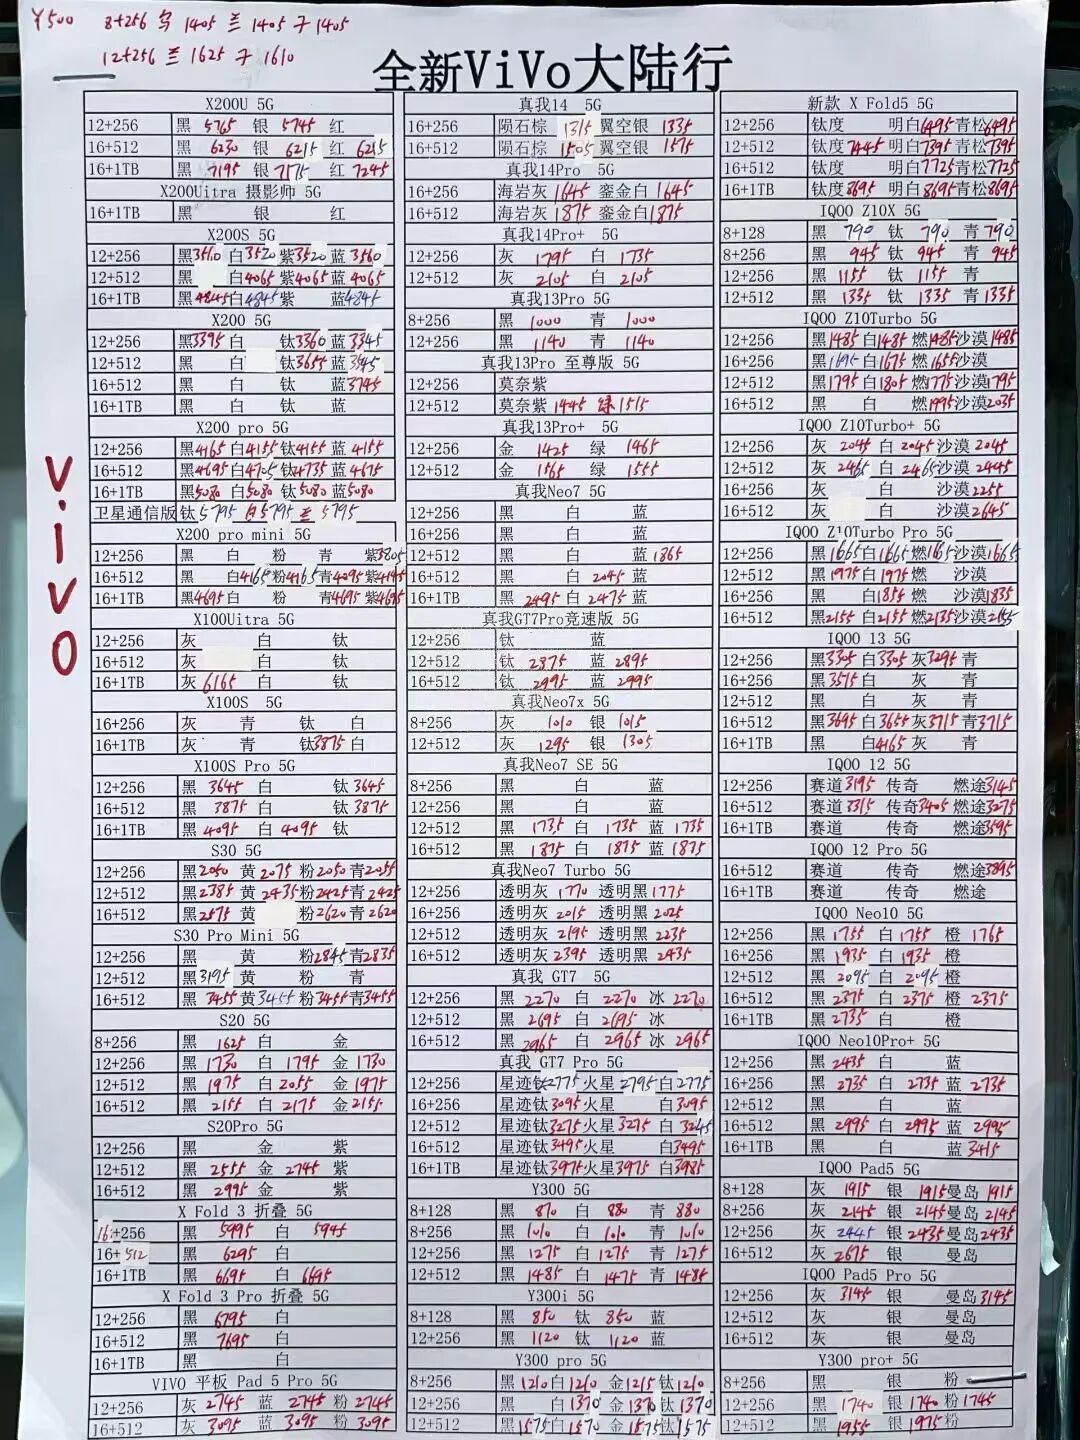 Y500 8+256 乌 1405 兰 1405 子 1405
12+256 兰 1625 子 1610
全新ViVo大陆行
ViVO
X200U 5G
12+256 黑 5765 银 5745 红
16+512 黑 6230 银 6215 红 6215
16+1TB 黑 7195 银 7175 红 7245
X200Uitra 摄影师 5G
16+1TB 黑 银 红
X200S 5G
12+256 黑3560 白3520 紫3520 蓝 3560
12+512 黑 白4065 紫4065 蓝 4065
16+1TB 黑4845 白4845 紫 蓝4845
X200 5G
12+256 黑3395 白 钛3360 蓝 3345
12+512 黑 白 钛3655 蓝
16+512 黑 白 钛 蓝3745
16+1TB 黑 白 钛 蓝
X200 pro 5G
12+256 黑4165 白4155 钛4155 蓝 4155
16+512 黑4695 白4705 钛4735 蓝 4675
16+1TB 黑5080 白5080 钛 5080 蓝5080
卫星通信版 钛5795 白5795 兰 5795
X200 pro mini 5G
12+256 黑 白 粉 青 紫3805
16+512 黑 白4165 粉4165 青4095 紫4145
16+1TB 黑4695 白 粉 青4695 紫4695
X100Uitra 5G
12+256 灰 白 钛
16+512 灰 白 钛
16+1TB 灰 6165 白 钛
X100S 5G
16+256 灰 青 钛 白
16+1TB 灰 青 钛3875 白
X100S Pro 5G
12+256 黑 3645 白 钛 3645
16+512 黑 3875 白 钛 3875
16+1TB 黑 4095 白 4095 钛
S30 5G
12+256 黑2050 黄 2075 粉2050 青2055
12+512 黑2385 黄 2435 粉2425 青2425
16+512 黑2575 黄 粉2620 青2620
S30 Pro Mini 5G
12+256 黑 黄 粉2845 青2835
12+512 黑3195 黄 粉 青
16+512 黑 3455 黄3455 粉3455 青3455
S20 5G
8+256 黑 1625 白 金
12+256 黑 1730 白 1795 金 1730
12+512 黑 1975 白 2055 金 1975
16+512 黑 2155 白 2175 金 2155
S20Pro 5G
12+256 黑 金 紫
12+512 黑 2555 金 2745 紫
16+512 黑 2995 金 紫
X Fold 3 折叠 5G
16+256 黑 5995 白 5945
16+512 黑 6295 白
16+1TB 黑 6695 白 6695
X Fold 3 Pro 折叠 5G
12+256 黑 6795 白
16+512 黑 7695 白
16+1TB 黑 白
VIVO 平板 Pad 5 Pro 5G
12+256 灰 2745 蓝 2745 粉 2745
16+512 灰 3095 蓝 3095 粉 3095
真我14 5G
16+256 陨石棕 1315 翼空银 1335
16+512 陨石棕 1505 翼空银 1575
真我14Pro 5G
16+256 海岩灰 1645 銮金白 1645
16+512 海岩灰 1875 銮金白1875
真我14Pro+ 5G
12+256 灰 1795 白 1735
12+512 灰 2105 白 2105
真我13Pro 5G
8+256 黑 1000 青 1000
12+256 黑 1140 青 1140
真我13Pro 至尊版 5G
12+256 莫奈紫
12+512 莫奈紫 1445 绿 1515
真我13Pro+ 5G
12+256 金 1425 绿 1465
12+512 金 1565 绿 1555
真我Neo7 5G
12+256 黑 白 蓝
16+256 黑 白 蓝
12+512 黑 白 蓝 1865
16+512 黑 白 2045 蓝
16+1TB 黑 2495 白 2475 蓝
真我GT7Pro竞速版 5G
12+256 钛 蓝
12+512 钛 2875 蓝 2895
16+512 钛 2995 蓝 2995
真我Neo7x 5G
8+256 灰 1010 银 1015
12+512 灰 1295 银 1305
真我Neo7 SE 5G
8+256 黑 白 蓝
12+256 黑 白 蓝
12+512 黑 1735 白 1735 蓝 1735
16+512 黑 1875 白 1875 蓝 1875
真我Neo7 Turbo 5G
12+256 透明灰 1770 透明黑 1775
16+256 透明灰 2015 透明黑 2025
12+512 透明灰 2195 透明黑 2235
16+512 透明灰 2395 透明黑 2435
真我 GT7 5G
12+256 黑 2270 白 2270 冰 2270
12+512 黑 2695 白 2695 冰
16+512 黑 2965 白 2965 冰 2965
真我 GT7 Pro 5G
12+256 星迹钛2775 火星 2795 白2775
16+256 星迹钛3095 火星 白3095
12+512 星迹钛3275 火星 3275 白 3245
16+512 星迹钛3495 火星 白3495
16+1TB 星迹钛3975 火星 3975 白3985
Y300 5G
8+128 黑 870 白 880 青 880
8+256 黑 1010 白 1010 青 1010
12+256 黑 1275 白 1275 青 1275
12+512 黑 1485 白 1475 青 1485
Y300i 5G
8+128 黑 850 钛 850 蓝
12+256 黑 1120 钛 1120 蓝
Y300 pro 5G
8+256 黑 1210 白1210 金1215 钛1210
12+256 黑 白 1370 金1370 钛1370
12+512 黑1575 白1570 金1575 钛1575
新款 X Fold5 5G
12+256 钛度 明白6495 青松6495
12+512 钛度 7445 明白7395 青松7395
16+512 钛度 明白7725 青松7725
16+1TB 钛度8695 明白8695 青松8695
IQOO Z10X 5G
8+128 黑 790 钛 790 青 790
8+256 黑 945 钛 945 青 945
12+256 黑 1155 钛 1155 青
12+512 黑 1335 钛 1335 青 1335
IQOO Z10Turbo 5G
12+256 黑1485 白1485 燃1485 沙漠 1485
16+256 黑1695 白1675 燃1655 沙漠
12+512 黑1795 白1805 燃1775 沙漠1795
16+512 黑 白 燃1995 沙漠2035
IQOO Z10Turbo+ 5G
12+256 灰 2045 白 2045 沙漠 2045
12+512 灰 2465 白 2465 沙漠 2445
16+256 灰 白 沙漠 2255
16+512 灰 白 沙漠2645
IQOO Z10Turbo Pro 5G
12+256 黑1665 白1665 燃1665 沙漠1665
12+512 黑1975 白1975 燃 沙漠
16+256 黑 白1854 燃 沙漠1835
16+512 黑2155 白2155 燃2135 沙漠2155
IQOO 13 5G
12+256 黑3305 白3305 灰3295 青
16+256 黑3575 白 灰 青
12+512 黑 白 灰 青
16+512 黑3695 白3655 灰3715 青3715
16+1TB 黑 白4165 灰 青
IQOO 12 5G
12+256 赛道3195 传奇 燃途3145
16+512 赛道3315 传奇3405 燃途3275
16+1TB 赛道 传奇 燃途3595
IQOO 12 Pro 5G
16+512 赛道 传奇 燃途3895
16+1TB 赛道 传奇 燃途
IQOO Neo10 5G
12+256 黑 1755 白 1755 橙 1765
16+256 黑 1935 白 1935 橙
12+512 黑 2095 白 2095 橙
16+512 黑 2375 白 2375 橙 2375
16+1TB 黑 2735 白 橙
IQOO Neo10Pro+ 5G
12+256 黑 2435 白 蓝
16+256 黑 2735 白 2735 蓝 2735
12+512 黑 白 蓝
16+512 黑 2995 白 2995 蓝 2995
16+1TB 黑 白 蓝 3415
IQOO Pad5 5G
8+128 灰 1915 银 1915 曼岛 1915
8+256 灰 2145 银 2145 曼岛 2145
12+256 灰 2445 银 2435 曼岛2435
16+512 灰 2675 银 曼岛
IQOO Pad5 Pro 5G
12+256 灰 3145 银 曼岛3145
12+512 灰 银 曼岛
16+512 灰 银 曼岛
Y300 pro+ 5G
8+256 黑 银 粉
12+256 黑 1740 银 1740 粉1745
12+512 黑 1955 银 1975 粉